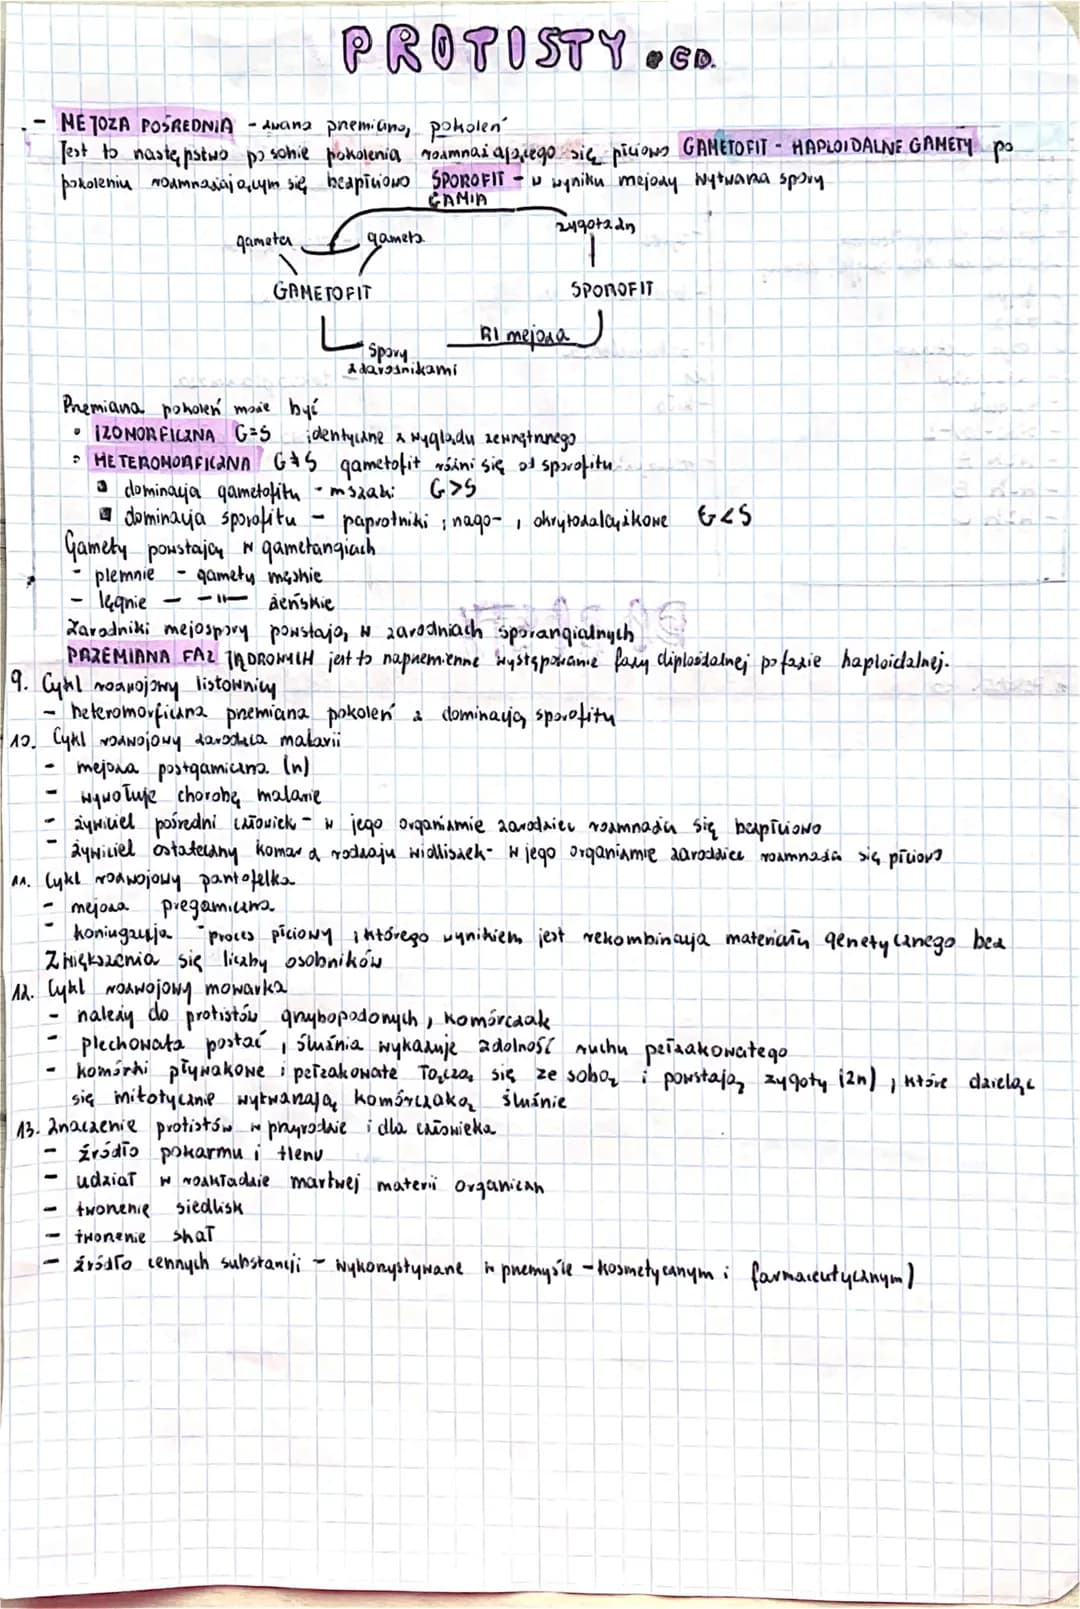 PROTISTY • CD.
- MEJOZA POŚREDNIA - zwana przemianą pokoleń
Jest to następstwo po sobie pokolenia rozmnażającego się płciowo GAMETOFIT - HAPLOIDALNE GAMETY po
pokoleniu rozmnażającym się bezpłciowo SPOROFIT - w wyniku mejozy wytwarza spory
GAMIA
gameta gameta zygota 2n
GAMETOFIT SPOROFIT
R! mejoza
Spory
zdarosnikami
Przemiana pokoleń może być
• IZOMORFICZNA G=S identyczne z wyglądu zewnętrznego
• HETEROMORFICZNA G≠S gametofit różni się od sporofitu
dominacja gametofitu - mszaki G>S
dominacja sporofitu - paprotniki ; nago- , okrytozalążkowe G<S
Gamety powstają w gametangiach
- plemnie - gamety męskie
- lęgnie - -11- żeńskie
Zarodniki mejospory powstają w zarodniach sporangialnych
PRZEMIANA FAZ JĄDROWYCH jest to naprzemienne występowanie fazy diploidalnej po fazie haploidalnej.
9. Cykl rozwojowy listownicy
- heteromorficzna przemiana pokoleń z dominacją sporofitu
10. Cykl rozwojowy zarodźca malarii
- mejoza postgamiczna (n)
- wywołuje chorobę malarie
- żywiciel pośredni człowiek - w jego organizmie zarodziec rozmnaża się bezpłciowo
- żywiciel ostateczny komar z rodzaju widliszek - w jego organizmie zarodziec rozmnaża się płciowo
11. Cykl rozwojowy pantofelka
- mejoza pregamiczna
- koniugacja - proces płciowy, którego wynikiem jest rekombinacja materiału genetycznego bez
Zwiększenia się liczby osobników
12. Cykl rozwojowy rnowarka
- należy do protistów grzybopodonych, komórczak
- plechowata postać, śluźnia wykazuje zdolność ruchu pełzakowatego
- komórki pływakowe i pełzakowate łączą się ze sobą i powstają zygoty (2n), które dzieląc
się mitotycznie wytwarzają komórczaką śluźnie
13. Znaczenie protistów w przyrodzie i dla człowieka
- źródło pokarmu i tlenu
- udział w rozkładzie martwej materii organiczn
- tworzenie siedlisk
- tworzenie skał
- źródło cennych substancji - wykorzystywane w przemyśle - kosmetycznym i farmaceutycznym)